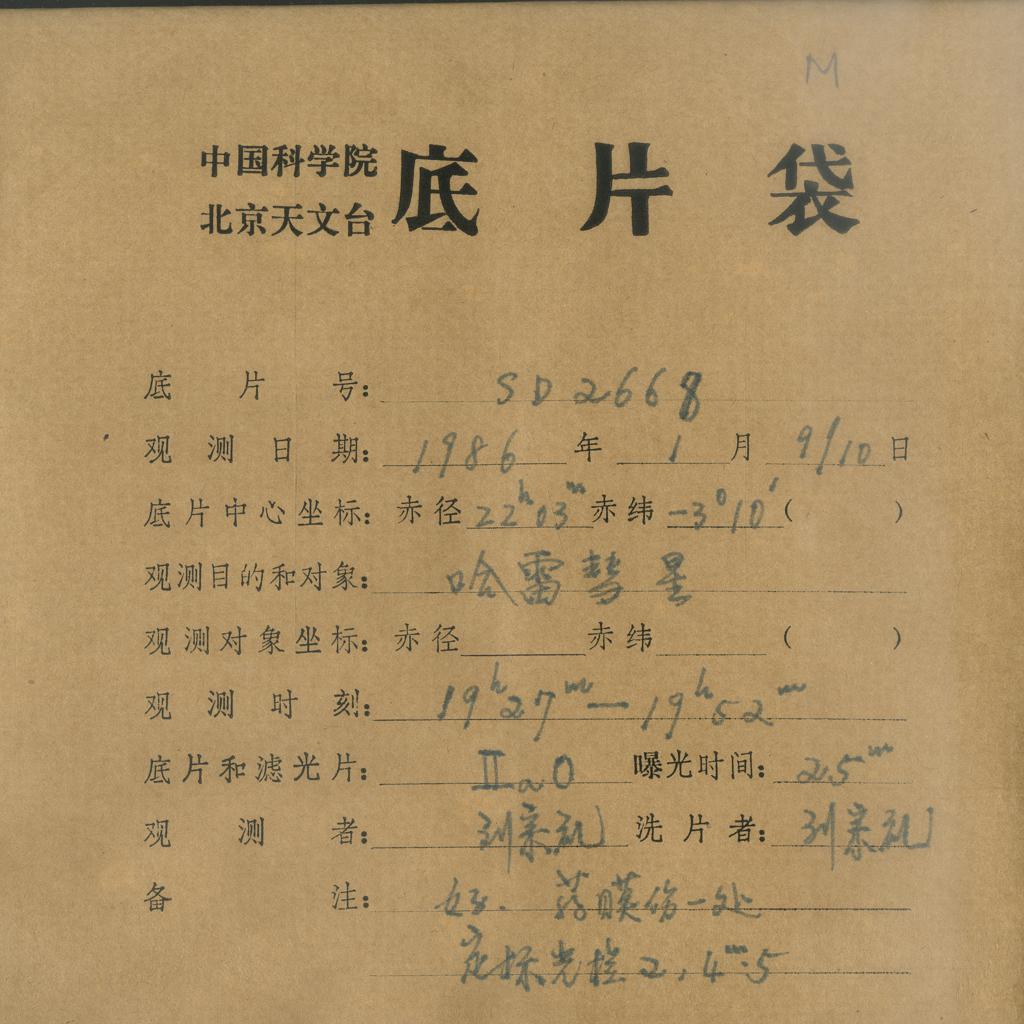 M
中国科学院
北京天文台 底片袋
底片号: SD2668
观测日期: 1986年 1月 9/10日
底片中心坐标: 赤径 22ʰ03ᵐ 赤纬 -3°10′ ( )
观测目的和对象: 哈雷彗星
观测对象坐标: 赤径 赤纬 ( )
观测时刻: 19ʰ27ᵐ — 19ʰ52ᵐ
底片和滤光片: IIaO 曝光时间: 25ᵐ
观测者: 刘宗礼 洗片者: 刘宗礼
备注: 好. 药膜伤一处
定标光楔 2, 4ᵐ.5